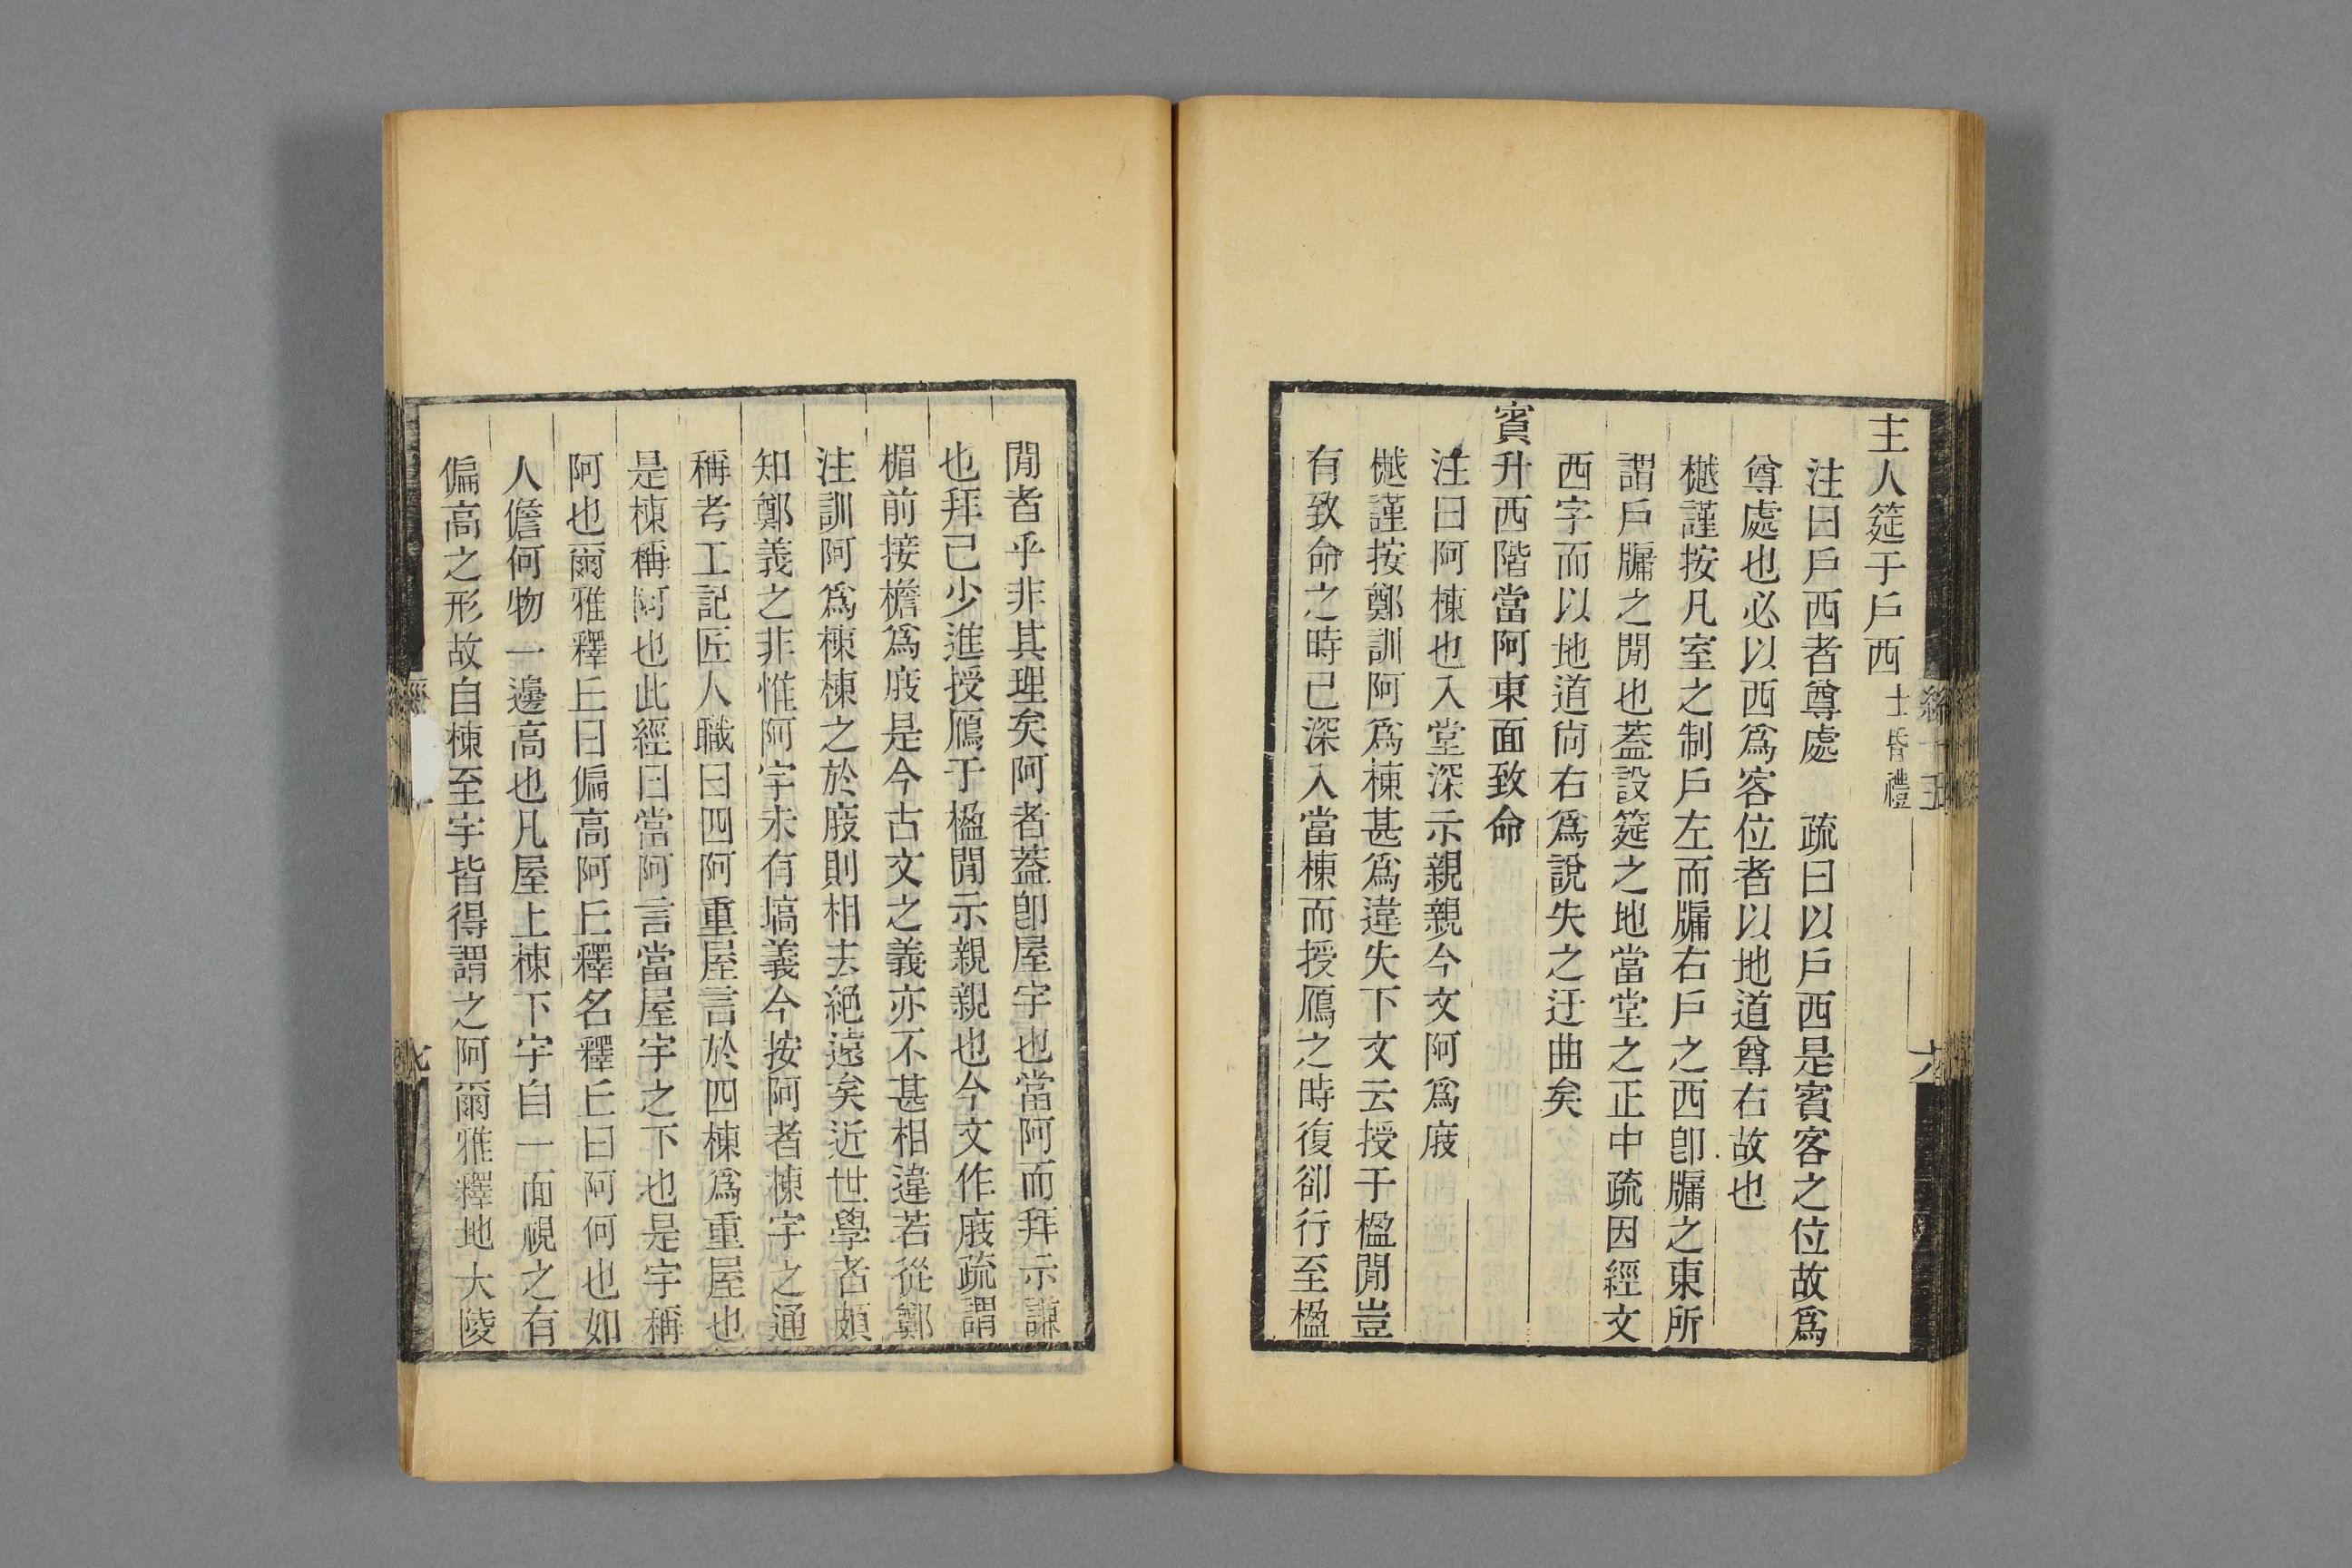 主人筵于戶西士昏禮
注曰戶西者尊處　疏曰以戶西是賓客之位故爲
尊處也必以西爲客位者以地道尊右故也
樾謹按凡室之制戶左而牖右戶之西卽牖之東所
謂戶牖之閒也蓋設筵之地當堂之正中疏因經文
西字而以地道尙右爲說失之迂曲矣
賓升西階當阿東面致命
注曰阿棟也入堂深示親親今文阿爲庪
樾謹按鄭訓阿爲棟甚爲違失下文云授于楹閒豈
有致命之時已深入當棟而授鴈之時復卻行至楹
閒者乎非其理矣阿者蓋卽屋宇也當阿而拜示謙
也拜已少進授鴈于楹閒示親親也今文作庪疏謂
楣前接檐爲庪是今古文之義亦不甚相違若從鄭
注訓阿爲棟棟之於庪則相去絕遠矣近世學者頗
知鄭義之非惟阿字未有塙義今按阿者棟宇之通
稱考工記匠人職曰四阿重屋言於四棟爲重屋也
是棟稱阿也此經曰當阿言當屋宇之下也是宇稱
阿也爾雅釋丘曰偏高阿丘釋名釋丘曰阿何也如
人儋何物一邊高也凡屋上棟下宇自一面視之有
偏高之形故自棟至宇皆得謂之阿爾雅釋地大陵